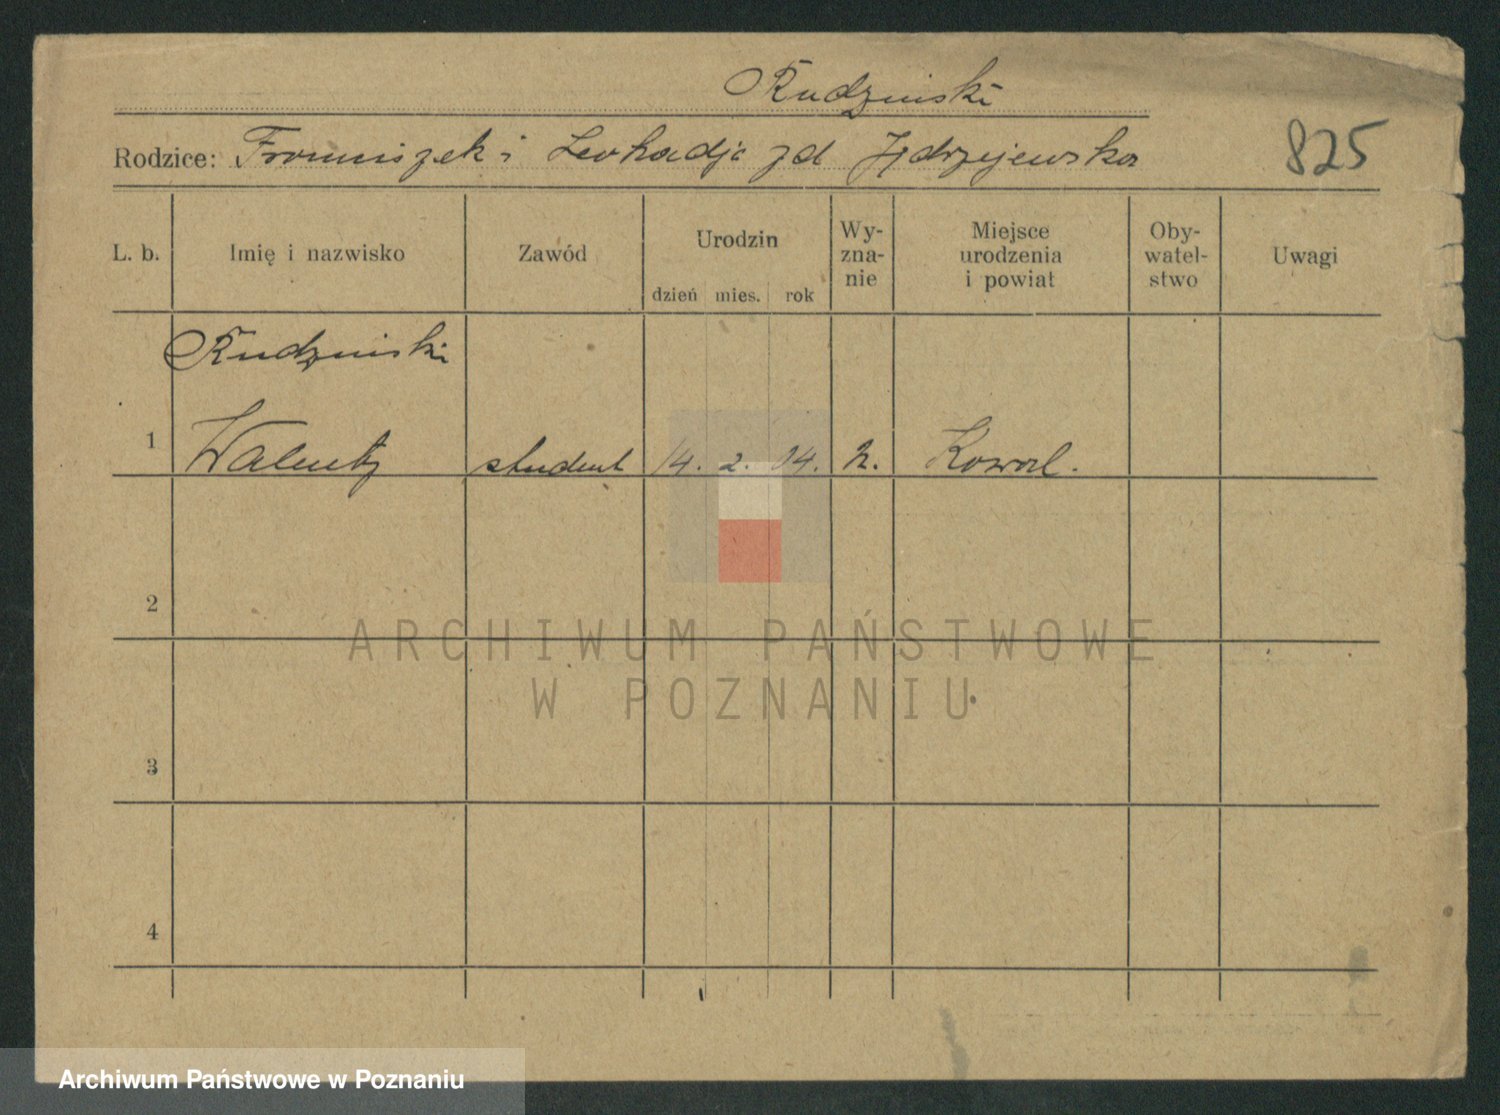 Rudzinski
Rodzice: Franciszek i Leokadja zd Jędrzejewska
825
L. b. Imię i nazwisko Zawód Urodzin dzień mies. rok Wy-zna-nie Miejsce urodzenia i powiat Oby-watel-stwo Uwagi
Rudzinski
1 Walenty student 14. 2. 04. Kowal.
2
ARCHIWUM PAŃSTWOWE
W POZNANIU
3
4
Archiwum Państwowe w Poznaniu